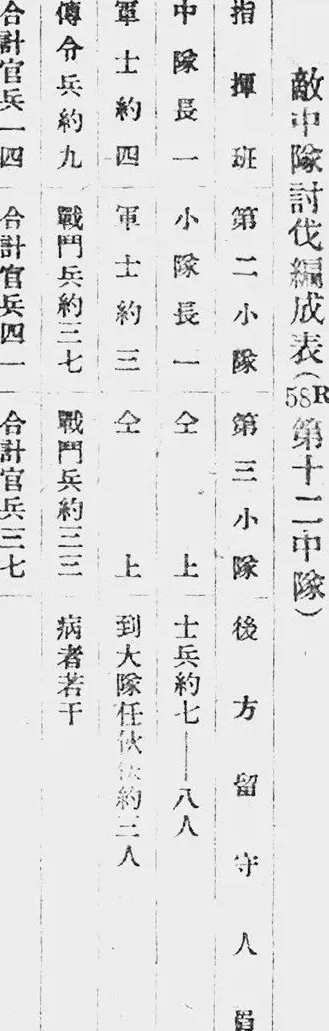 敵中隊討伐編成表(58R第十二中隊)
指揮班 第二小隊 第三小隊 後方留守人員
中隊長一 小隊長一 仝上 士兵約七——八人
軍士約四 軍士約三 仝上 到大隊任伙伕約三人
傳令兵約九 戰鬥兵約三七 戰鬥兵約三三 病者若干
合計官兵一四 合計官兵四一 合計官兵三七